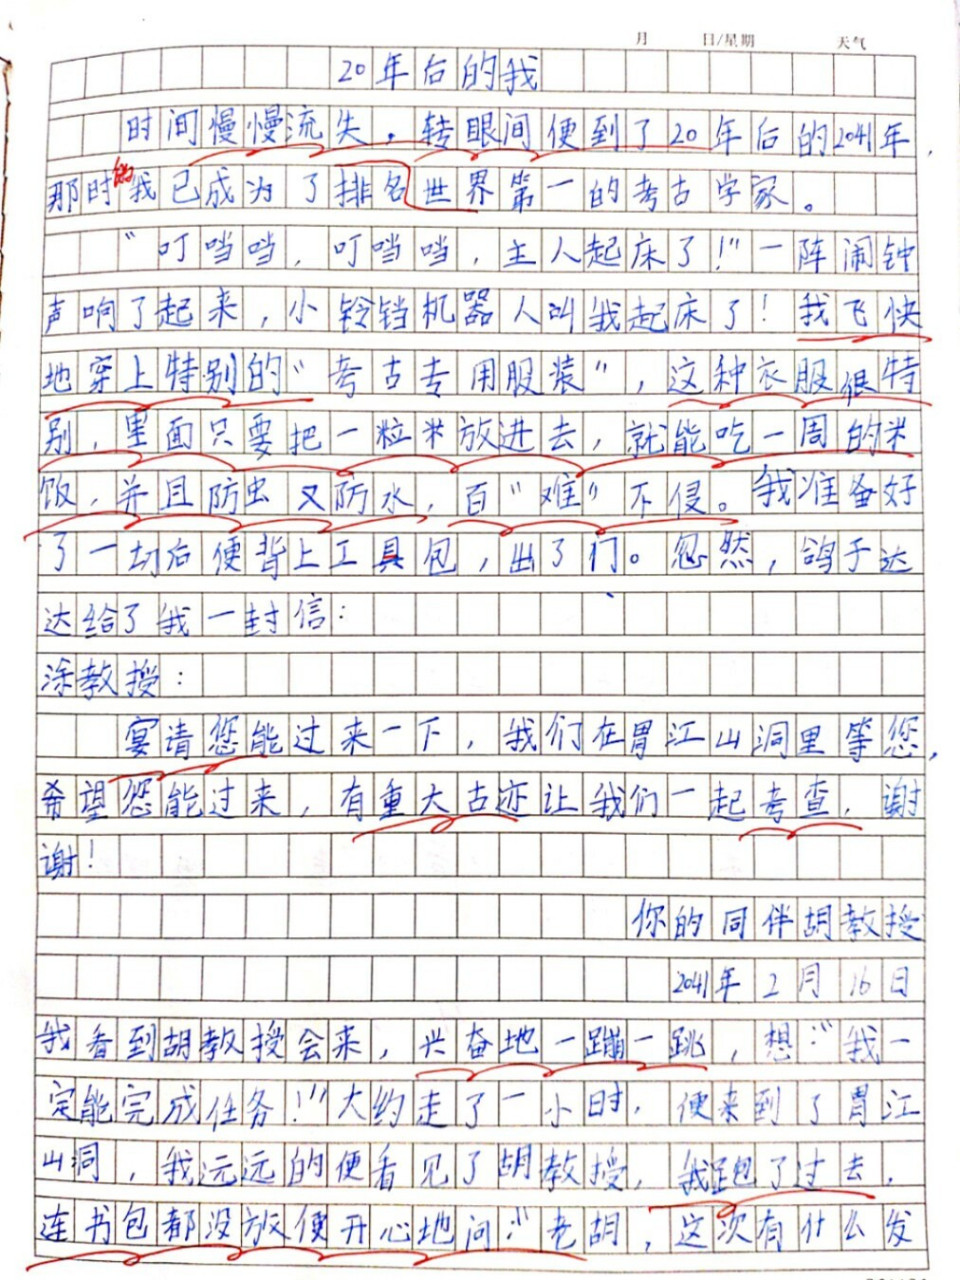 月 日/星期 天气
20年后的我
时间慢慢流失，转眼间便到了20年后的2041年，
那时的我已成为了排名世界第一的考古学家。
“叮当当，叮当当，主人起床了！”一阵闹钟
声响了起来，小铃铛机器人叫我起床了！我飞快
地穿上特别的“考古专用服装”，这种衣服很特
别，里面只要把一粒米放进去，就能吃一周的米
饭，并且防虫又防水，百“难”不侵。我准备好
了一切后便背上工具包，出了门。忽然，鸽子达
达给了我一封信：
涂教授：
宴请您能过来一下，我们在胃江山洞里等您，
希望您能过来，有重大古迹让我们一起考查，谢
谢！
你的同伴胡教授
2041年2月16日
我看到胡教授会来，兴奋地一蹦一跳，想：“我一
定能完成任务！”大约走了一小时，便来到了胃江
山洞，我远远的便看见了胡教授，我跑了过去，
连书包都没放便开心地问：“老胡，这次有什么发